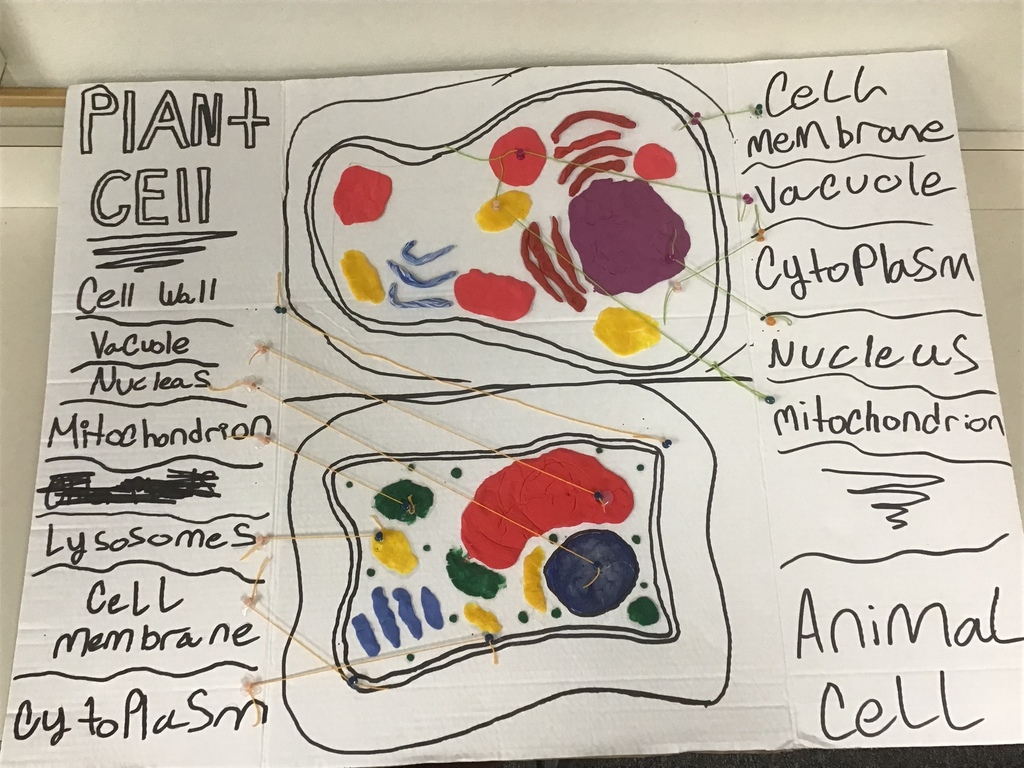 PLANT
CELL
Cell Wall
Vacuole
Nucleus
Mitochondrion
Lysosomes
Cell
membrane
Cytoplasm
Cell
membrane
Vacuole
Cytoplasm
Nucleus
mitochondrion
Animal
Cell